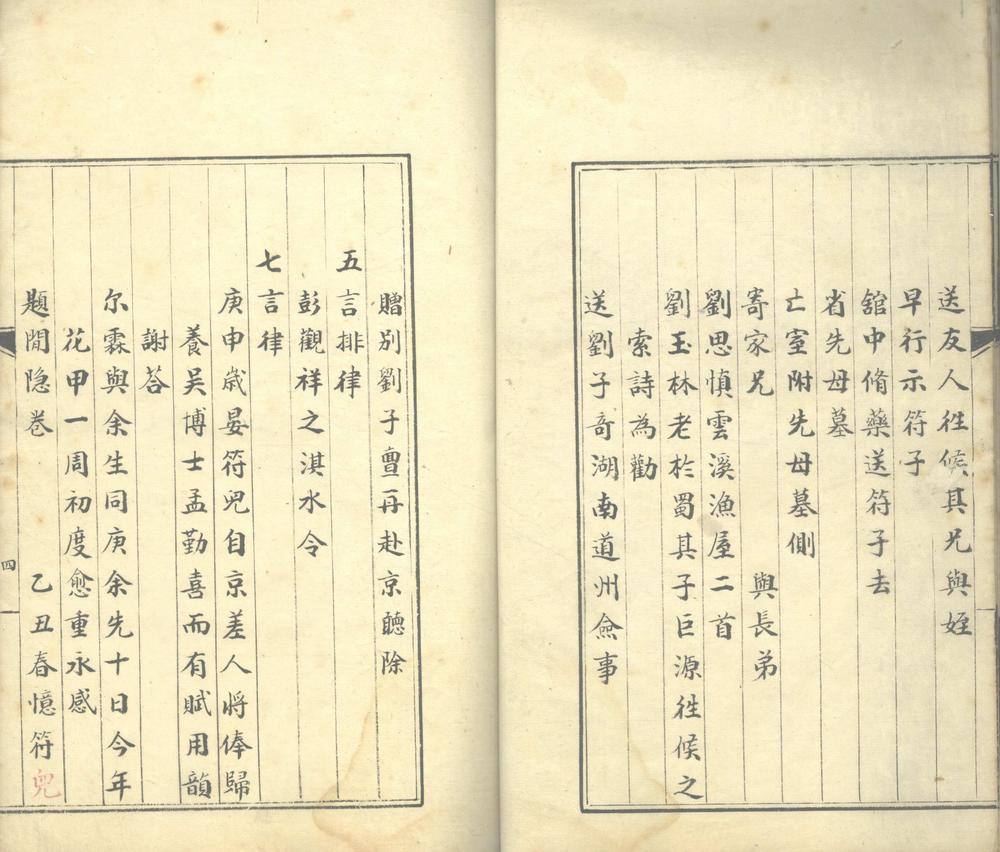 送友人徃候其兄與姪
早行示符子
舘中脩藥送符子去
省先母墓
亡室附先母墓側
寄家兄　與長弟
劉思慎雲溪漁屋二首
劉玉林老於蜀其子巨源徃候之
索詩為勸
送劉子奇湖南道州僉事
贈别劉子曺再赴京聽除
五言排律
彭觀祥之淇水令
七言律
庚申歲晏符兒自京差人將俸歸
養吴博士孟勤喜而有賦用韻
謝荅
尔霖與余生同庚余先十日今年
花甲一周初度愈重永感
題閒隐卷　乙丑春憶符兒
四